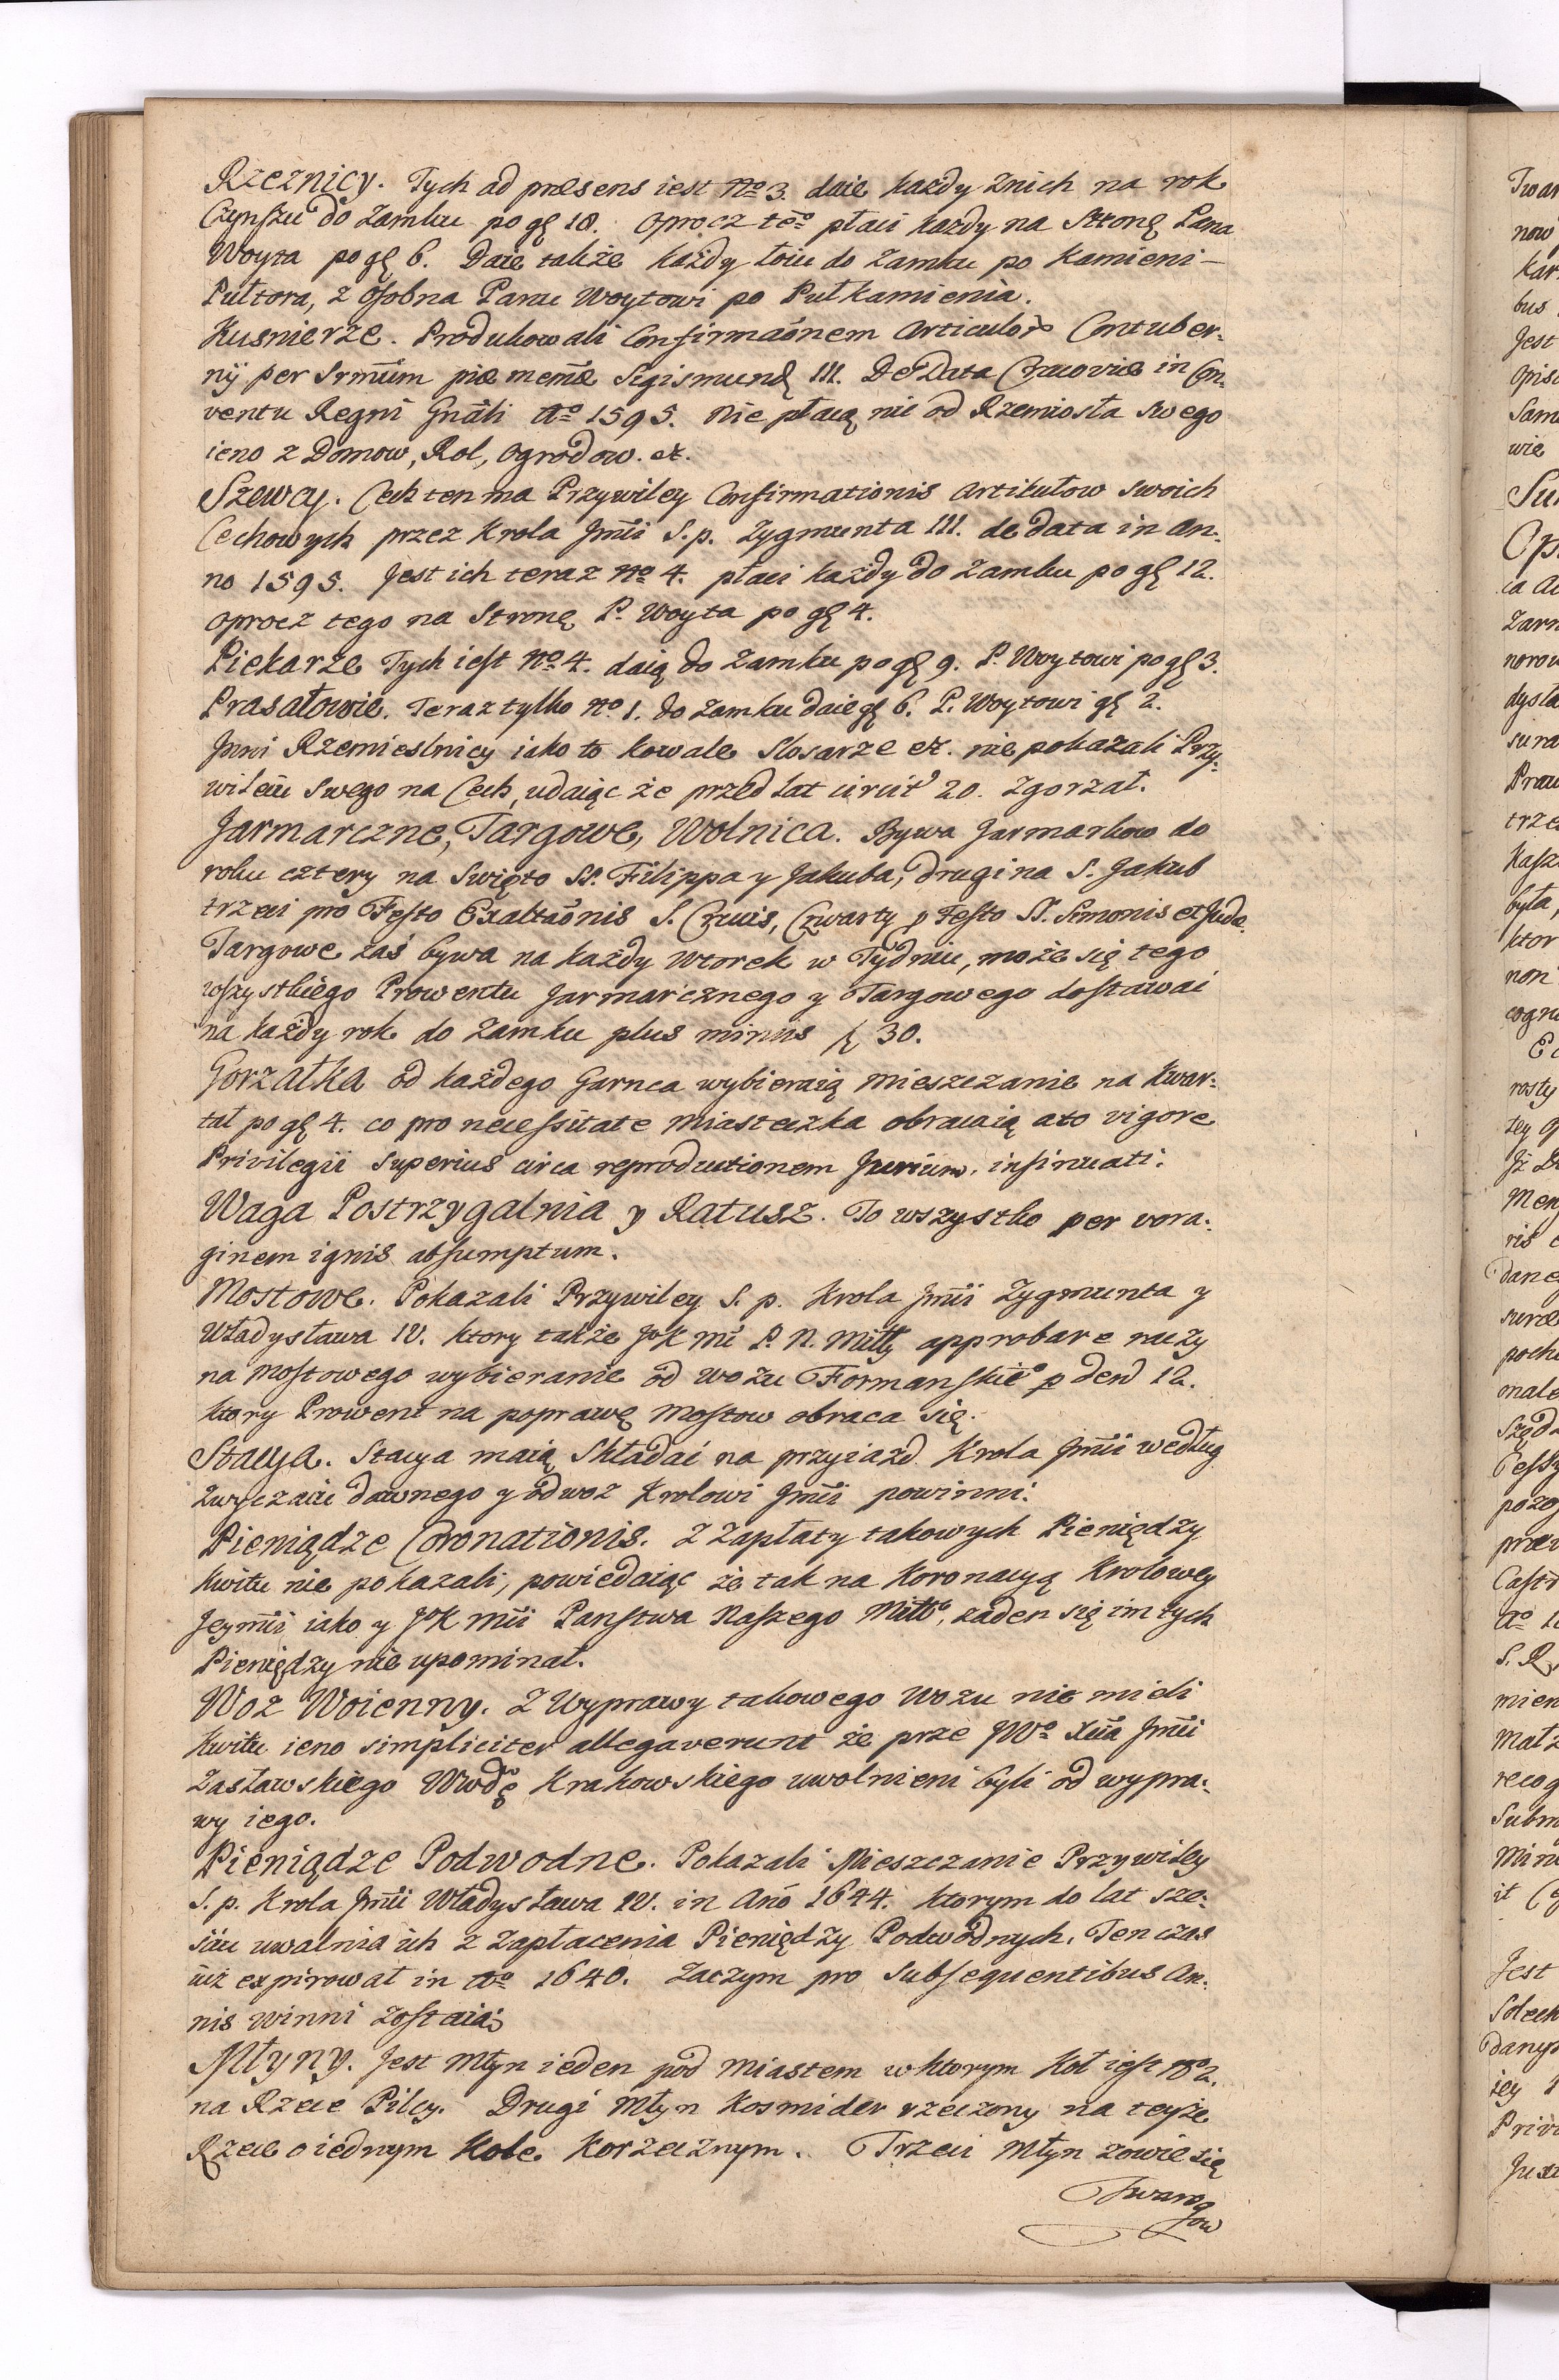 Rzeznicy. Tych ad præsens iest No 3. daie każdy znich na rok
Czynszu do Zamku po gę 18. oprocz teo płaci każdy na Stronę Pana
Woyta po gę 6. Daie także każdy łoiu do Zamku po Kamieni
Pułtora, z osobna Panu Woytowi po Puł kamienia.
Kusnierze. Produkowali Confirmaönem Articulor Contuber-
nij per Srmum piæ memæ Sigismund III. De Data Cracoviæ in Con-
ventu Regni Gnäli Ao 1595. Nie płacą nic od Rzemiosła swego
ieno z Domow, Rol, Ogrodow. et.
Szewcy. Cech ten ma Przywiley Confirmationis Artikułow swoich
Cechowych przez Krola Jmci S. p. Zygmunta III. de data in An-
no 1595. Jest ich teraz No 4. płaci każdy do Zamku po gę 12.
oprocz tego na Stronę P. Woyta po gę 4.
Piekarze Tych iest No 4. daią do Zamku po gę 9. P. Woytowi po gę 3.
Prasałowie. Teraz tylko No 1. do Zamku daie gę 6. P. Woytowi gę 2.
Inni Rzemieslnicy iako to kowale Slosarze et. nie pokazali Przy-
wileiu Swego na Cech, udaiąc że przed lat circit 20. zgorzał.
Jarmarczne, Targowe, Wolnica. Bywa Jarmarkow do
roku cztery na Swięto SS. Filippa y Jakuba, drugi na S. Jakub
trzeci pro Festo Exaltaönis S. Crucis, Czwarty p Festo SS. Simonis et Judæ.
Targowe zaś bywa na każdy Wtorek w Tydniu, może się tego
wszystkiego Prowentu Jarmarcznego y Targowego dostawać
na każdy rok do Zamku plus minus f 30.
Gorzałka od każdego Garnca wybieraią mieszczanie na Kwar-
tał po gę 4. co pro necessitate Miasteczka obracaią a to vigore
Privilegii superius circa reproductionem Jurium insinuati.
Waga Postrzygalnia y Ratusz. To wszystko per vora-
ginem ignis absumptum.
Mostowe. Pokazali Przywiley S. p. Krola Jmci Zygmunta y
Władysława IV. ktory także JoK Mć P. N. Miłły approbare raczy
na Mostowego wybieranie od wozu Formanskieo p den 12.
ktory Prowent na poprawę Mostow obraca się.
Stacya. Stacya maią składać na przyiazd Krola Jmci według
zwyczaiu dawnego y odwoz Krolowi Jmci powinni.
Pieniądze Coronationis. Z Zapłaty takowych Pieniędzy
Kwitu nie pokazali, powiedaiąc że tak na Koronacyą Krolowey
Jeymci iako y JoK Mci Panstwa Naszego Miłło, żaden się im tych
Pieniędzy nie upominał.
Woz Woienny. Z Wyprawy takowego Wozu nie mieli
Kwitu ieno simpliciter allegaverunt że prze JWo Xcia Jmci
Zasławskiego Wwdę Krakowskiego uwolnieni byli od wypra-
wy iego.
Pieniądze Podwodne. Pokazali Mieszczanie Przywiley
S. p. Krola Jmci Władysława IV. in Año 1644. ktorym do lat sze-
sciu uwalnia ich z Zapłacenia Pieniędzy Podwodnych. Ten czas
iuż expirował in Ao 1640. Zaczym pro subsequentibus An-
nis winni zostaią.
Młyny. Jest Młyn ieden pod Miastem w ktorym Koł iest No 2.
na Rzece Pilcy. Drugi Młyn Kosmider rzeczony na teyże
Rzece o iednym Kole Korzecznym. Trzeci Młyn zowie się
Twarog
ow